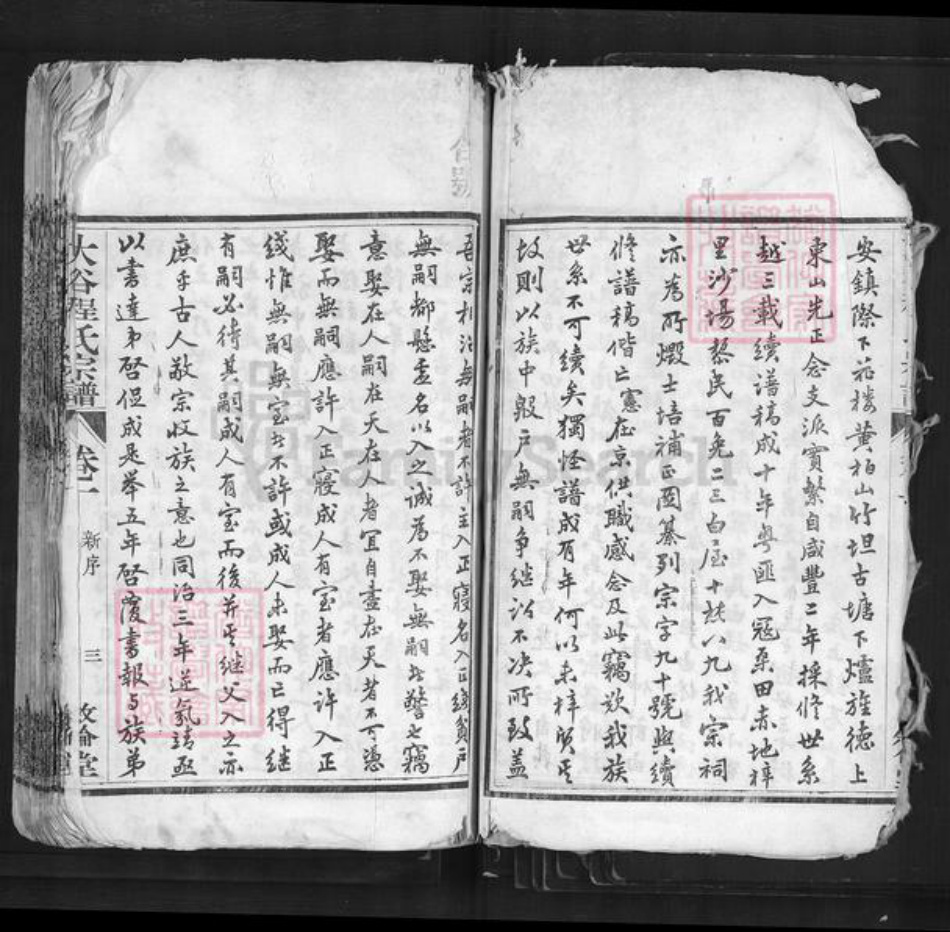 安鎮際下花樓黄栢山竹坦古塘下爐旌德上
東山先正念支派實繁自咸豐二年採修世系
越三載續譜稿成十年粤匪入寇桑田赤地梓
里沙場黎民百免二三白屋十杕八九我宗祠
亦為所燬士培補正圖纂列宗字九十號與續
修譜稿偕亡憲在京供職感念及此竊欲我族
世系不可續矣獨怪譜成有年何以未梓質
故則以族中毁户無嗣争繼訟不决所致盖
吾宗相沿無嗣者不許主入正寢名入正綫貧户
無嗣都懸虚名以入之誠為不娶無嗣者警也竊
意娶在人嗣在天在人者宜自盡在天者不可憑
娶而無嗣應許入正寢成人有室者應許入正
綫惟無嗣無室者不許或成人未娶而已得继
有嗣必待其嗣成人有室而後并其继父入之亦
庶乎古人敬宗收族之意也同治三年逆氛靖亟
以書達弟啓促成是举五年啓覆書報与族弟
大谷程氏宗譜 卷一 新序 三 敘倫堂
FamilySearch